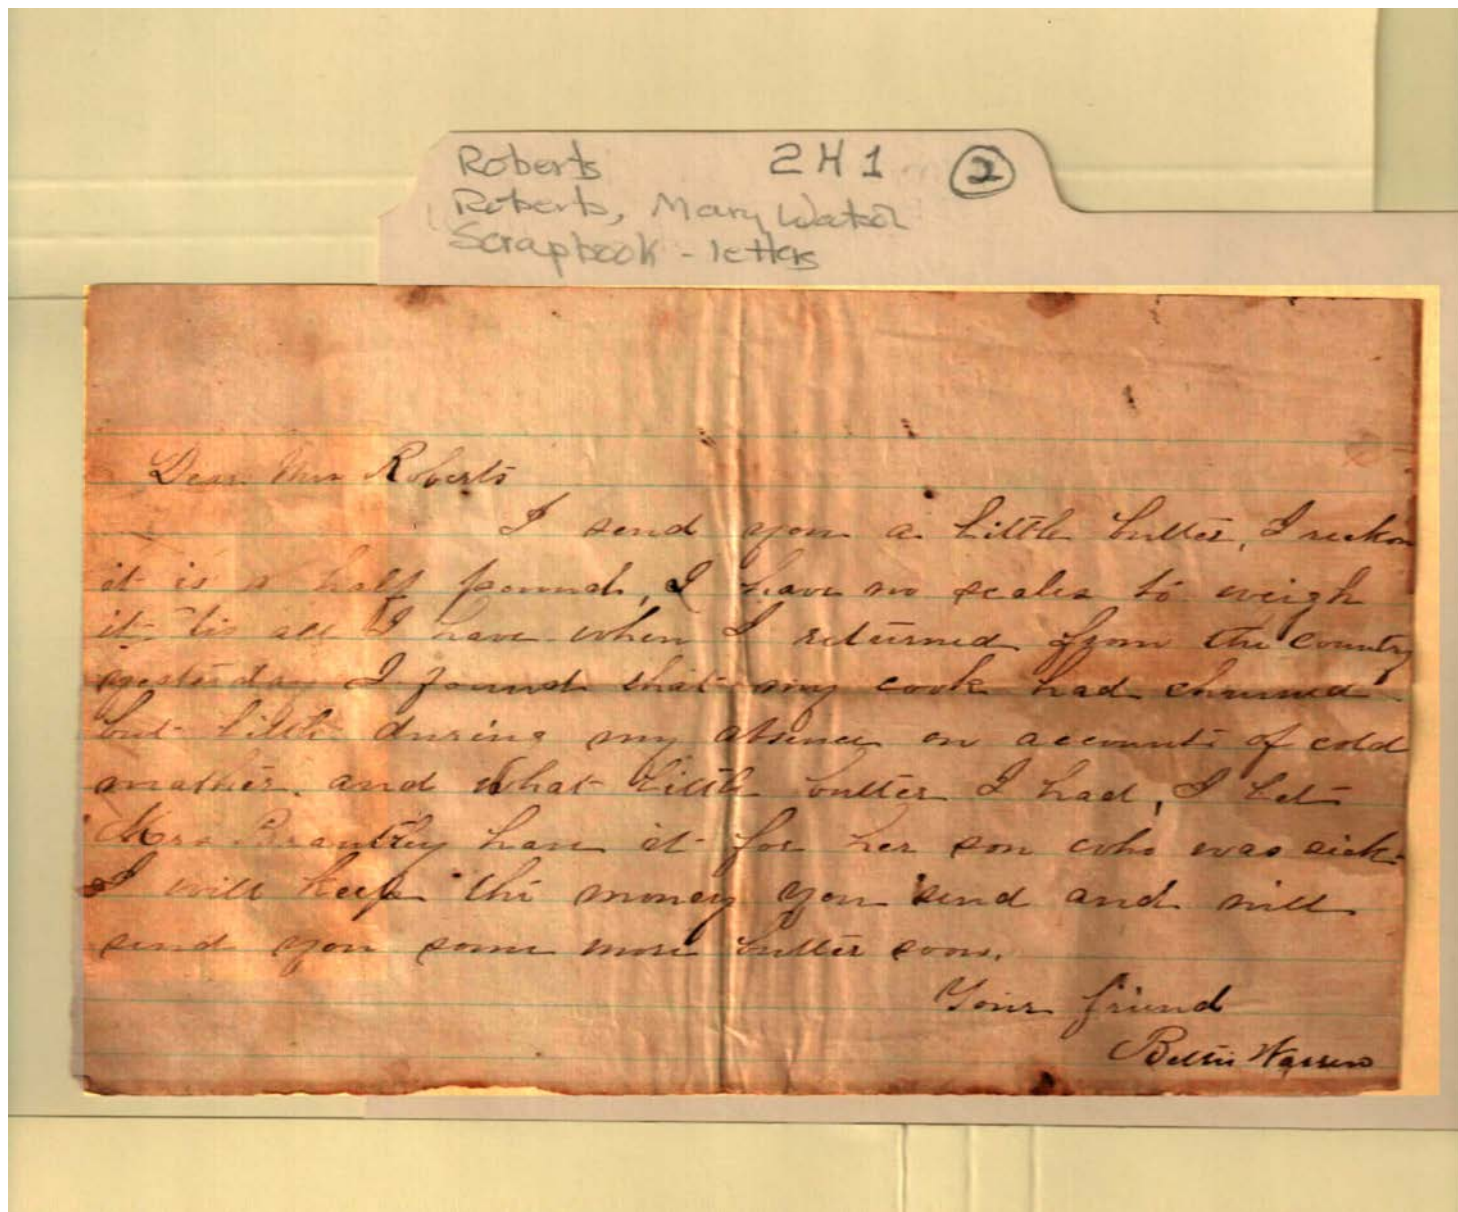 Roberts 2H1 2
Roberts, Mary Watson
Scrapbook - letters
Dear Mrs Roberts
I send you a little butter, I reckon
it is a half pound, I have no scales to weigh
it 'tis all I have when I returned from the country
yesterday I found that my cook had churned
but little during my absence on accounts of cold
weather. and what little butter I had, I let
Mrs Brantley have it for her son who was sick
I will keep the money you send and will
send you some more butter soon.
Your friend
Bettie Warren